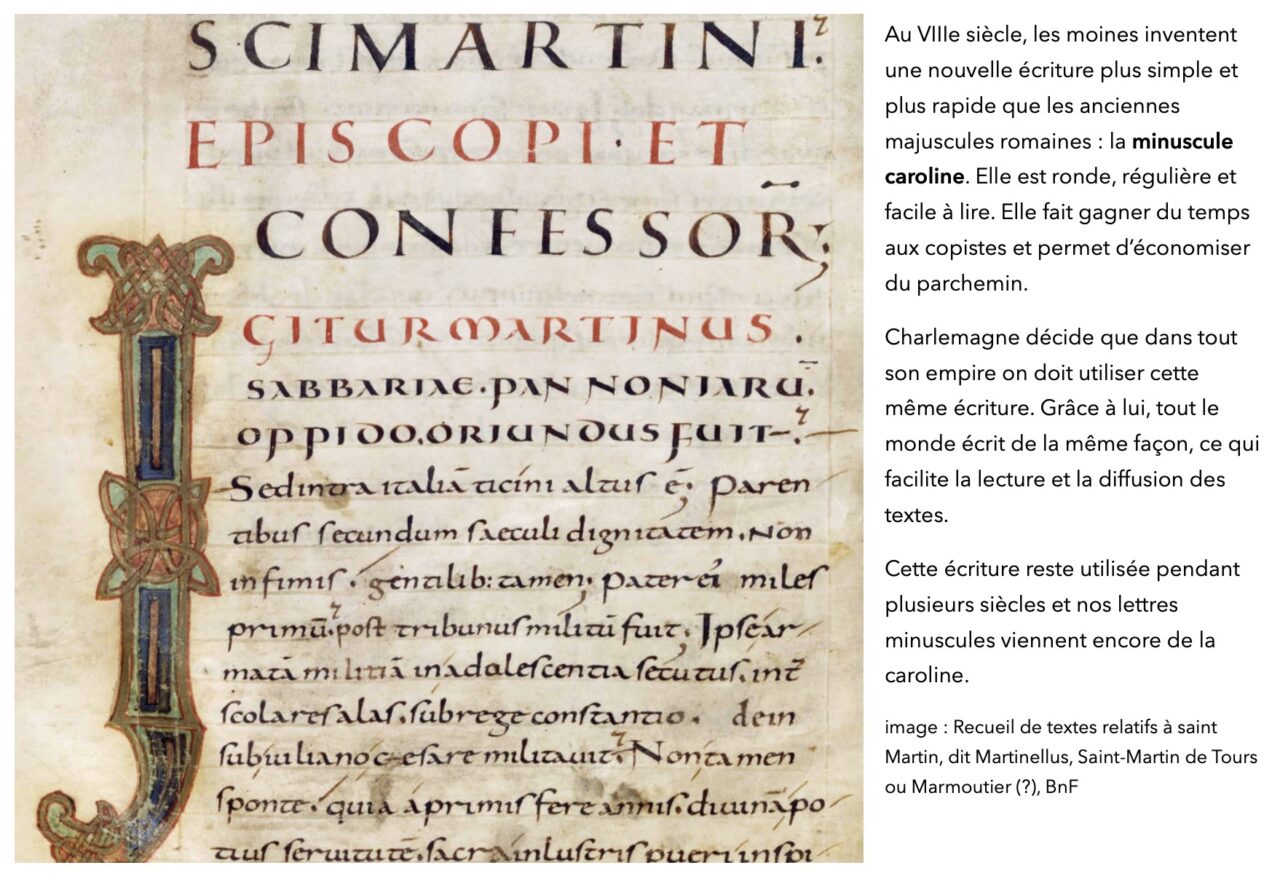 SCI MARTINI.
EPISCOPI · ET
CONFESSOR̄;
GITUR MARTINUS.
SABBARIAE · PANNONIARŪ.
OPPIDO. ORIUNDUS FUIT.
Sed intra italiā ticini altus ē; Paren
tibus secundum saeculi dignitatem. Non
infimis. gentilib: tamen; Pater ei miles
primū. post tribunus militū fuit; Ipse ar
matā militiā in adolescentia secutus. int̄
scolares alas. sub rege constantio. dein
sub iuliano cesare militauit. Non tamen
sponte. quia a primis fere annis. diuinā po
tius seruitutē. sacra inlustris pueri inspi
Au VIIIe siècle, les moines inventent
une nouvelle écriture plus simple et
plus rapide que les anciennes
majuscules romaines : la minuscule
caroline. Elle est ronde, régulière et
facile à lire. Elle fait gagner du temps
aux copistes et permet d’économiser
du parchemin.
Charlemagne décide que dans tout
son empire on doit utiliser cette
même écriture. Grâce à lui, tout le
monde écrit de la même façon, ce qui
facilite la lecture et la diffusion des
textes.
Cette écriture reste utilisée pendant
plusieurs siècles et nos lettres
minuscules viennent encore de la
caroline.
image : Recueil de textes relatifs à saint
Martin, dit Martinellus, Saint-Martin de Tours
ou Marmoutier (?), BnF